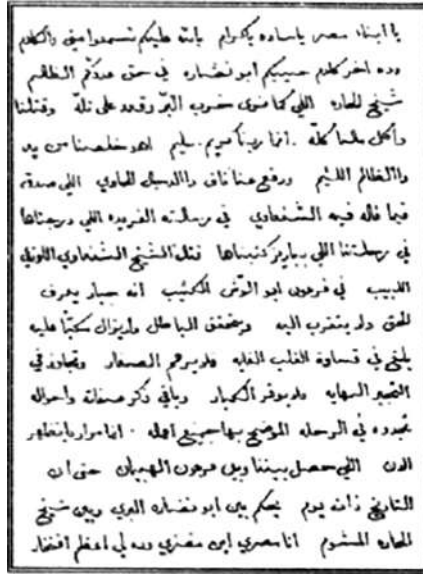 يا ابناء مصر يا ساده يا كرام بالله عليكم تسمعوا مني هالكلام
وده اخر كلام حبيبكم ابو نضاره في حق عدوكم الظالم
شيخ الحاره اللي كما فرعون خرب البر وقعد على تله وقتلنا
وأكل مالنا كله . انما ربنا كريم حليم اهو خلصنا من يد
هالظالم اللئيم ورفع عنا هالسبل الهاوي اللي صدق
فيما قاله فيه الشنفاوي في رسالته الفريده اللي درجناها
في رحلتنا اللي بباريز كتبناها فقال الشيخ الشنفاوي
اللبيب في فرعون ابو الوش الكئيب انه جبار يعرف
الحق ولا يتقرب اليه ويتحقق الباطل ولا يزال مكبا عليه
بلغ في قساوة القلب الغايه فلا يرحم الصغار وتجاوز في
التجبر النهايه ولا يوقر الكبار وباقي ذكر صفاته واحواله
تجدوه في الرحله الموضح بها جميع افعاله . انما مرادنا ينظهر
الان اللي حصل بيننا وبين فرعون حتى ان
التاريخ ذات يوم يحكم بين ابو نضاره البري وبين شيخ
الحاره المشوم انا مصري ابن مصري وده لي اعظم افتخار